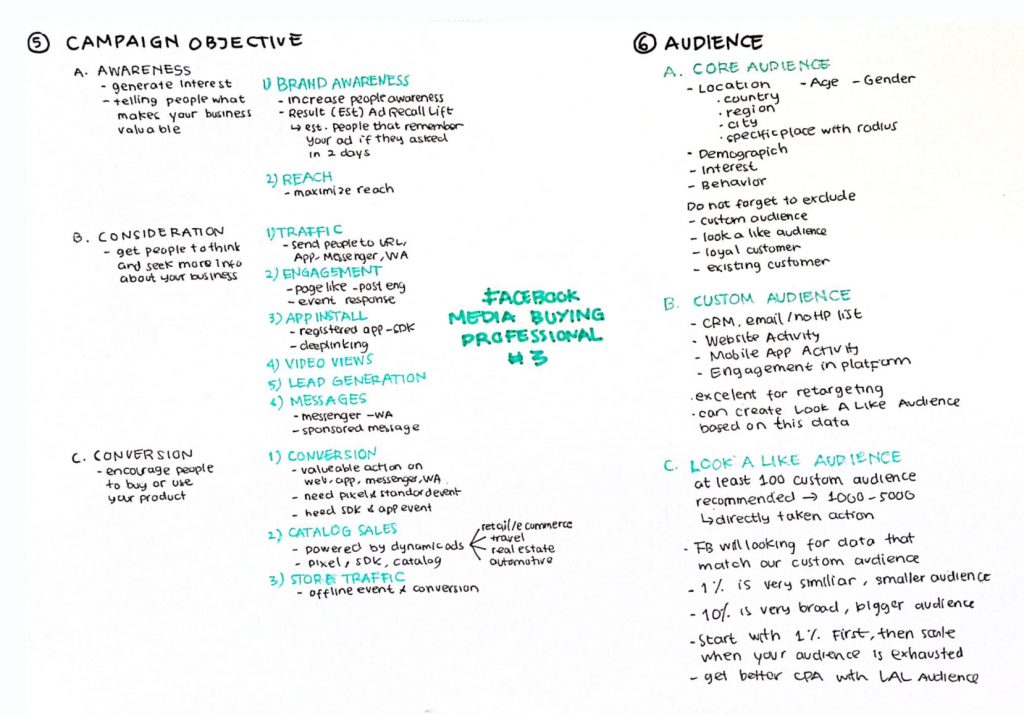 ⑤ CAMPAIGN OBJECTIVE
A. AWARENESS
- generate interest
- telling people what
makes your business
valuable
1) BRAND AWARENESS
- increase people awareness
- Result (Est) Ad Recall Lift
↳ est. people that remember
your ad if they asked
in 2 days
2) REACH
- maximize reach
B. CONSIDERATION
- get people to think
and seek more info
about your business
1) TRAFFIC
- send people to URL,
App-Messenger, WA
2) ENGAGEMENT
- page like - post eng
- event response
3) APP INSTALL
- registered app - SDK
- deeplinking
4) VIDEO VIEWS
5) LEAD GENERATION
6) MESSAGES
- messenger - WA
- sponsored message
C. CONVERSION
- encourage people
to buy or use
your product
1) CONVERSION
- valueable action on
web, app, messenger, WA.
- need pixel & standar event
- need SDK & app event
2) CATALOG SALES
- powered by dynamic ads
- pixel, SDK, catalog
retail/e commerce
travel
real estate
automotive
3) STORE TRAFFIC
- offline event & conversion
FACEBOOK
MEDIA BUYING
PROFESSIONAL
#3
⑥ AUDIENCE
A. CORE AUDIENCE
- Location - Age - Gender
· country
· region
· city
· specific place with radius
- Demograpich
- Interest
- Behavior
Do not forget to exclude
- custom audience
- look a like audience
- loyal customer
- existing customer
B. CUSTOM AUDIENCE
- CRM, email/no HP list
- Website Activity
- Mobile App Activity
- Engagement in platform
· excelent for retargeting
· can create Look A Like Audience
based on this data
C. LOOK A LIKE AUDIENCE
at least 100 custom audience
recommended → 1000 - 5000
↳ directly taken action
· FB will looking for data that
match our custom audience
- 1% is very similiar, smaller audience
- 10% is very broad, bigger audience
- Start with 1% first, then scale
when your audience is exhausted
- get better CPA with LAL Audience